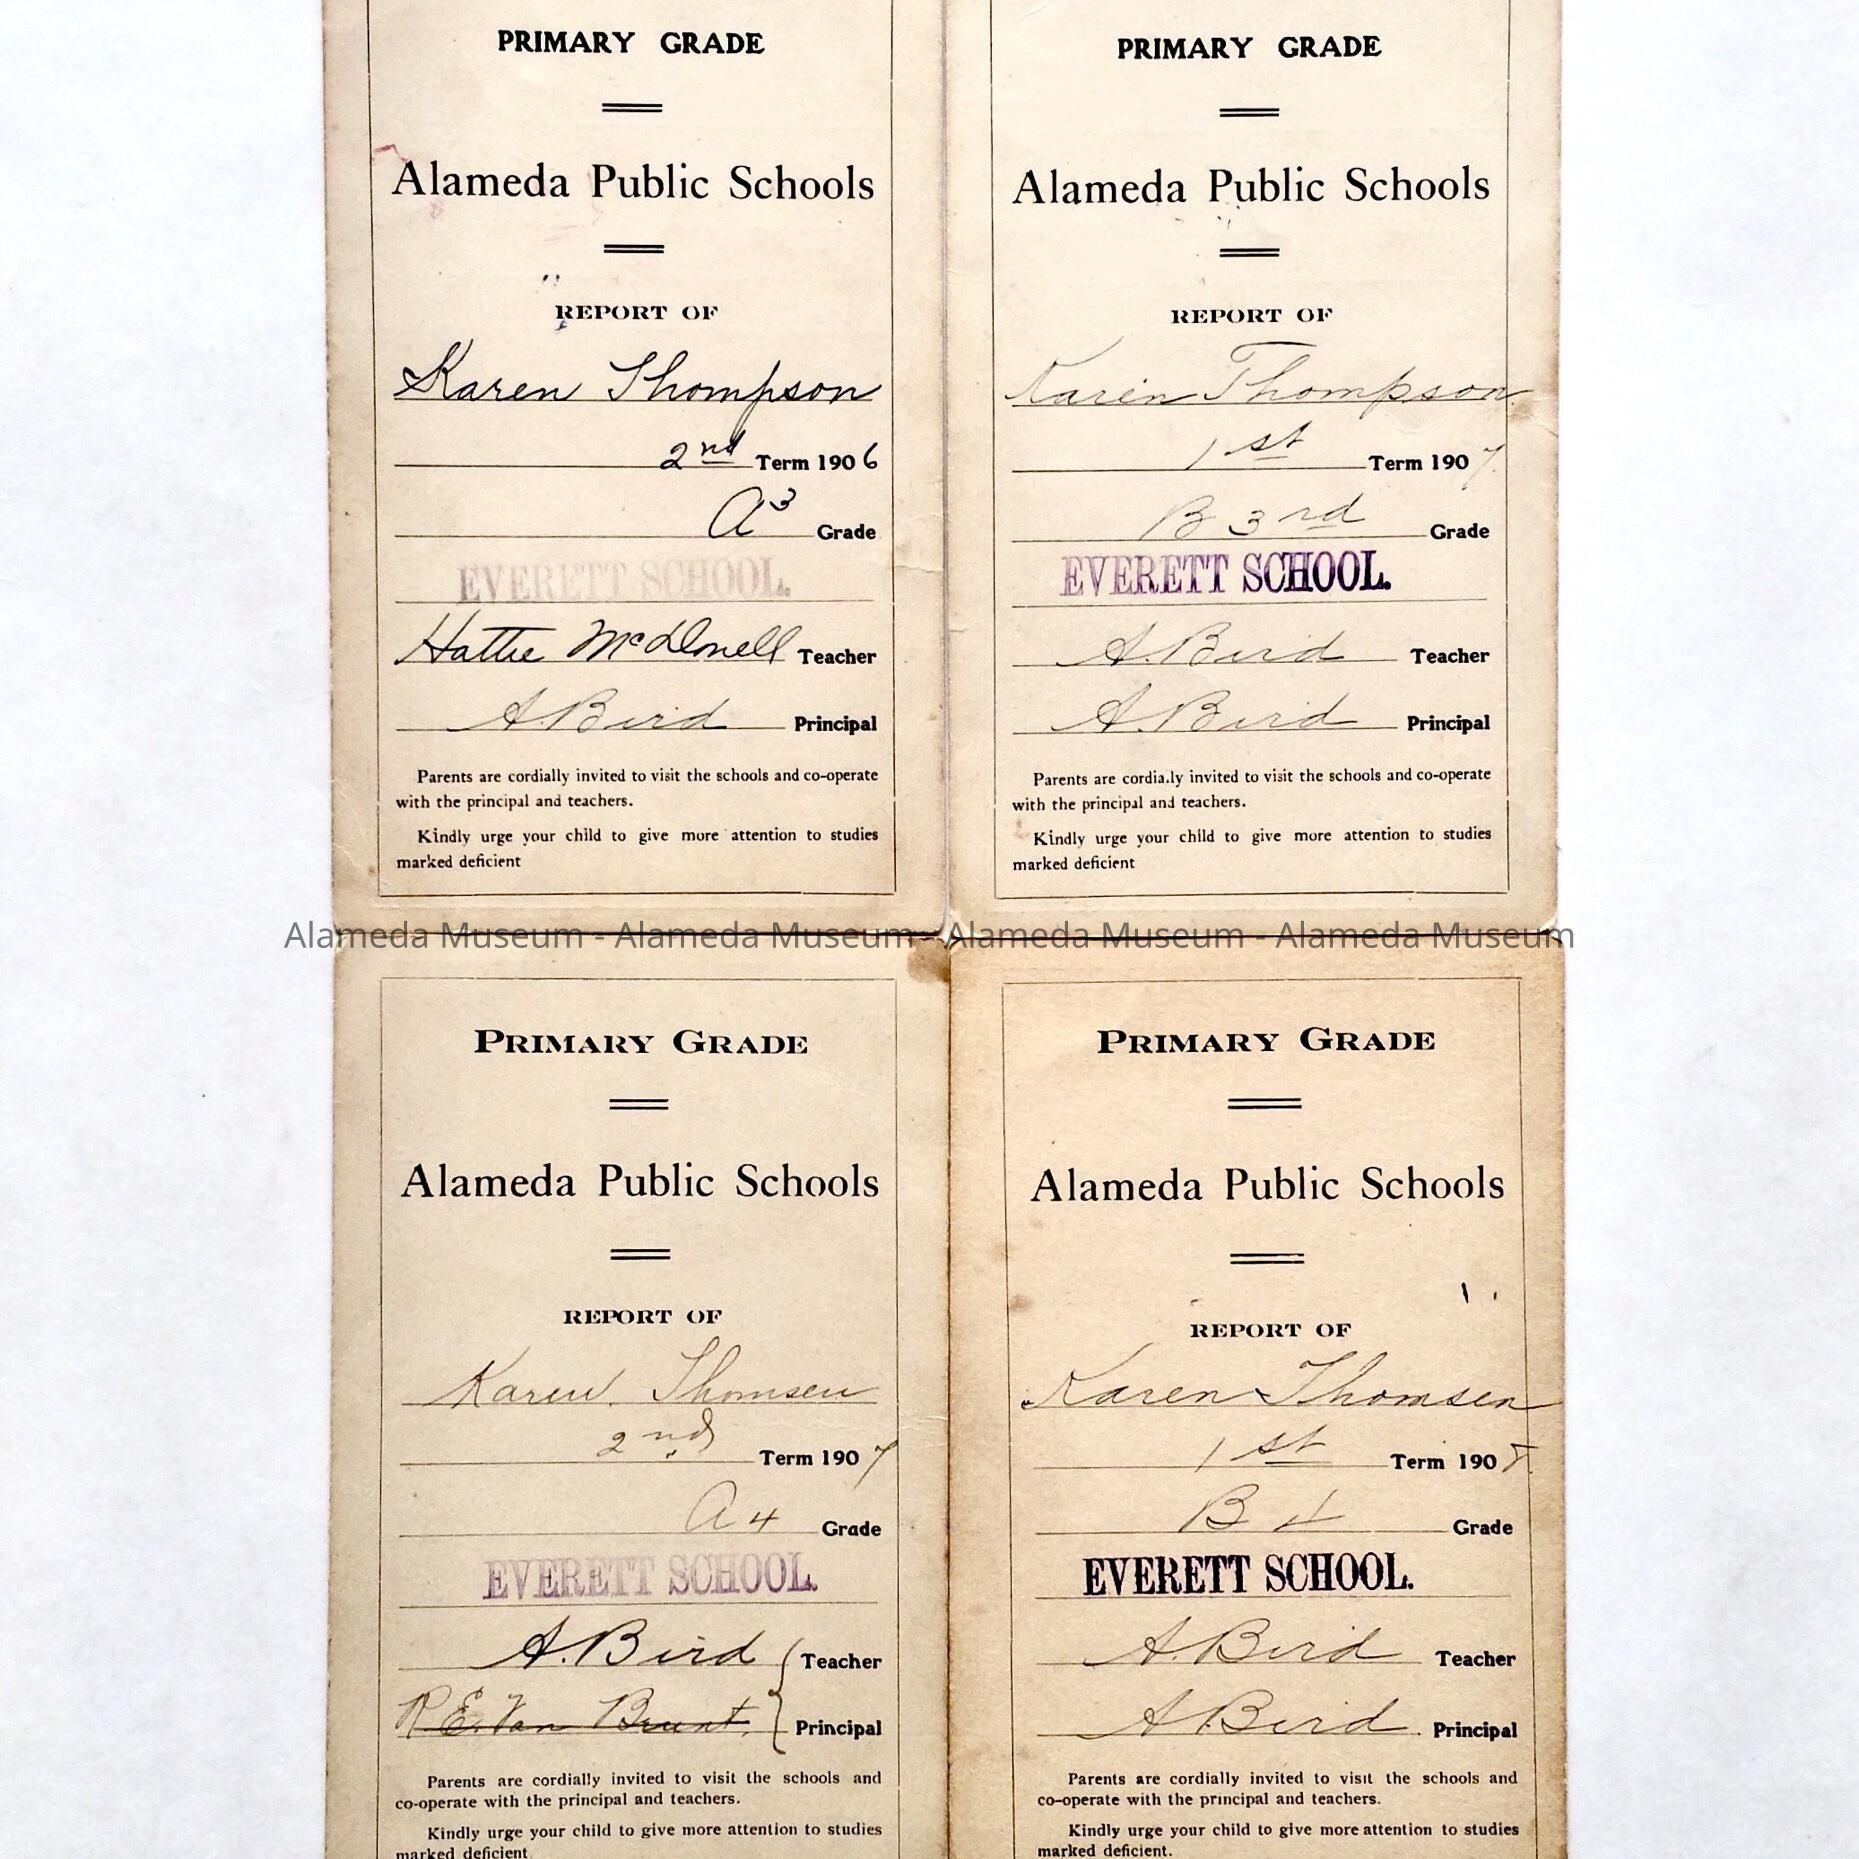 PRIMARY GRADE
Alameda Public Schools
REPORT OF
Karen Thompson
2nd Term 1906
A3 Grade
EVERETT SCHOOL.
Hattie McDonell Teacher
A. Bird Principal
Parents are cordially invited to visit the schools and co-operate
with the principal and teachers.
Kindly urge your child to give more attention to studies
marked deficient
PRIMARY GRADE
Alameda Public Schools
REPORT OF
Karen Thompson
1st Term 1907.
B 3rd Grade
EVERETT SCHOOL.
A. Bird Teacher
A. Bird Principal
Parents are cordially invited to visit the schools and co-operate
with the principal and teachers.
Kindly urge your child to give more attention to studies
marked deficient
Alameda Museum - Alameda Museum - Alameda Museum - Alameda Museum
PRIMARY GRADE
Alameda Public Schools
REPORT OF
Karen Thomsen
2nd Term 1907
A 4 Grade
EVERETT SCHOOL.
A. Bird Teacher
R. E. Van Brunt. Principal
Parents are cordially invited to visit the schools and
co-operate with the principal and teachers.
Kindly urge your child to give more attention to studies
marked deficient
PRIMARY GRADE
Alameda Public Schools
REPORT OF
Karen Thomsen
1st Term 1908.
B 4 Grade
EVERETT SCHOOL.
A. Bird Teacher
A. Bird. Principal
Parents are cordially invited to visit the schools and
co-operate with the principal and teachers.
Kindly urge your child to give more attention to studies
marked deficient.